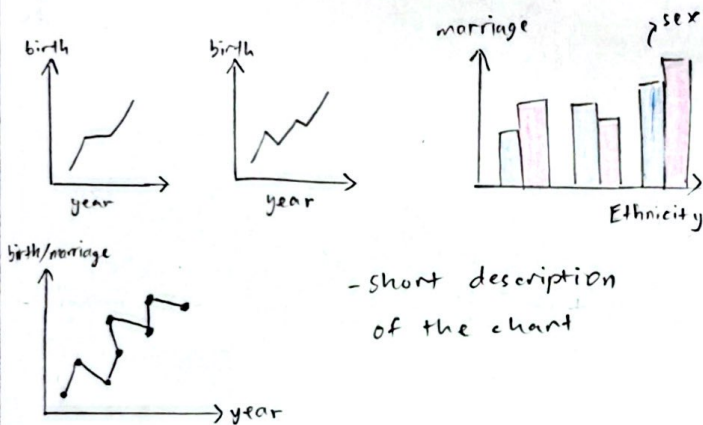 birth
year
birth
year
marriage
sex
Ethnicity
birth/marriage
year
- short description
of the chart